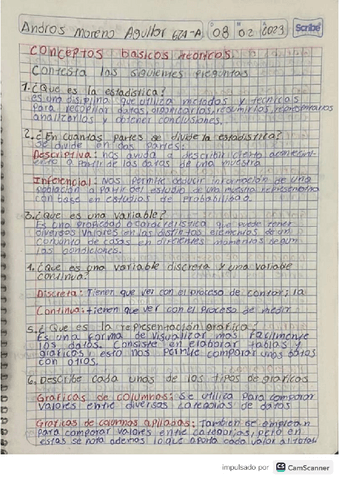 Andros Moreno Aguilar 621-A 08 02 2023 Scribe
Conceptos basicos teoricos.
Contesta las siguientes preguntas
1.¿Que es la estadistica?
es una disiplina que utiliza metodos y tecnicas
para recopilar datos, organizarlos, resumirlos
analizarlos y obtener conclusiones.
2.¿En cuantas partes se divide la estadistica?
Se divide en dos partes:
Descriptiva: nos ayuda a describir cierto
a partir de los datos de una muestra
Inferencial: nos permite deducir informacion de una
poblacion a partir del estudio de una muestra representativa
con base en estudios de probabilidad.
3.¿que es una variable?
Es una propiedad o caracteristica que puede tener
diversos valores en los distintos elementos de un
conjunto de casos en diferentes momentos segun
las condiciones.
4.¿que es una variable discreta y una variable
continua?
Discreta: Tienen que ver con el proceso de contar; la
Continua: tienen que ver con el Proceso de medir
5.¿Que es la representación grafica?
Es una forma de visualizar mas facilmente
los datos. Consiste en elaborar tablas y
graficos; esto nos permite comparar unos datos
con otros.
6. Describe cada unas de los tipos de graficas
Graficas de columnas: Se utiliza para comparar
valores entre diversas categorias de datos
Graficas de columnas apiladas: Tambien se emplean
para comparar valores entre categorias, pero en
estas se nota ademas lo que aporta cada valor al total
impulsado por CS CamScanner